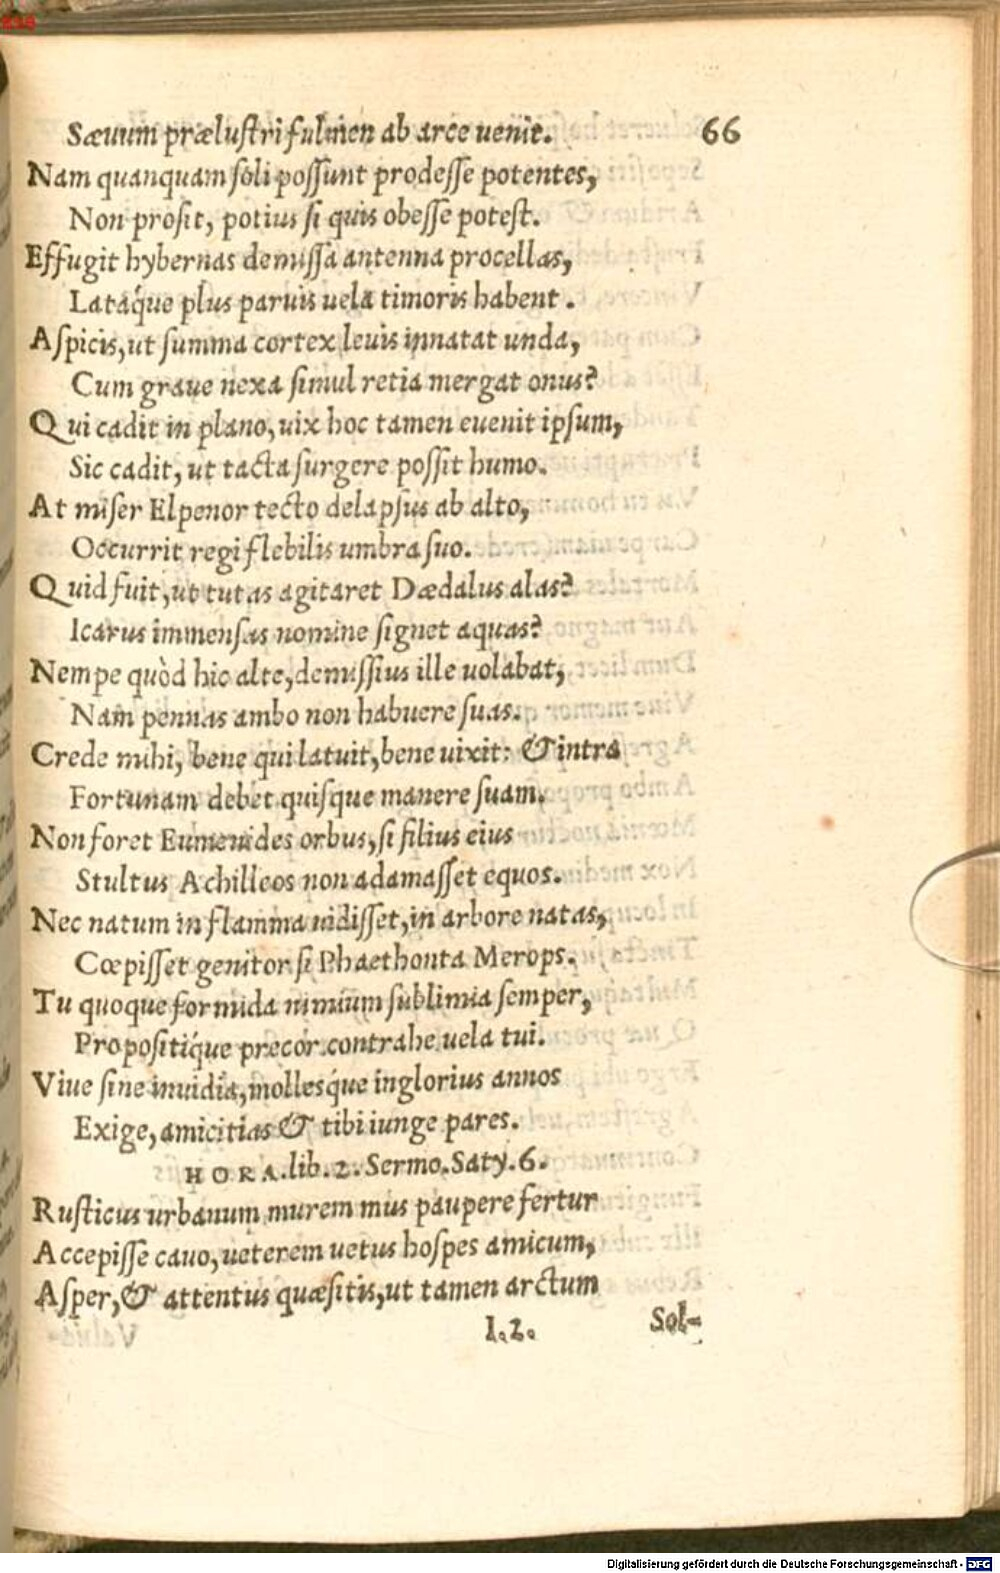 Sæuum prælustri fulmen ab arce uenit. 66
Nam quanquam soli possunt prodesse potentes,
Non prosit, potius si quis obesse potest.
Effugit hybernas demissa antenna procellas,
Lataq́ue plus paruis uela timoris habent.
Aspicis, ut summa cortex leuis innatat unda,
Cum graue nexa simul retia mergat onus?
Qui cadit in plano, uix hoc tamen euenit ipsum,
Sic cadit, ut tacta surgere possit humo.
At miser Elpenor tecto delapsus ab alto,
Occurrit regi flebilis umbra suo.
Quid fuit, ut tutas agitaret Dædalus alas?
Icarus immensas nomine signet aquas?
Nempe quòd hic alte, demissius ille uolabat,
Nam pennas ambo non habuere suas.
Crede mihi, bene qui latuit, bene uixit: & intra
Fortunam debet quisque manere suam.
Non foret Eumenides orbus, si filius eius
Stultus Achilleos non adamasset equos.
Nec natum in flamma uidisset, in arbore natas,
Cœpisset genitor si Phaethonta Merops.
Tu quoque formida nimium sublimia semper,
Propositiq́ue precor contrahe uela tui.
Viue sine inuidia, mollesq́ue inglorius annos
Exige, amicitias & tibi iunge pares.
HORA. lib. 2. Sermo. Saty. 6.
Rusticus urbanum murem mus paupere fertur
Accepisse cauo, ueterem uetus hospes amicum,
Asper, & attentus quæsitis, ut tamen arctum
I. 2. Sol-
Digitalisierung gefördert durch die Deutsche Forschungsgemeinschaft - DFG